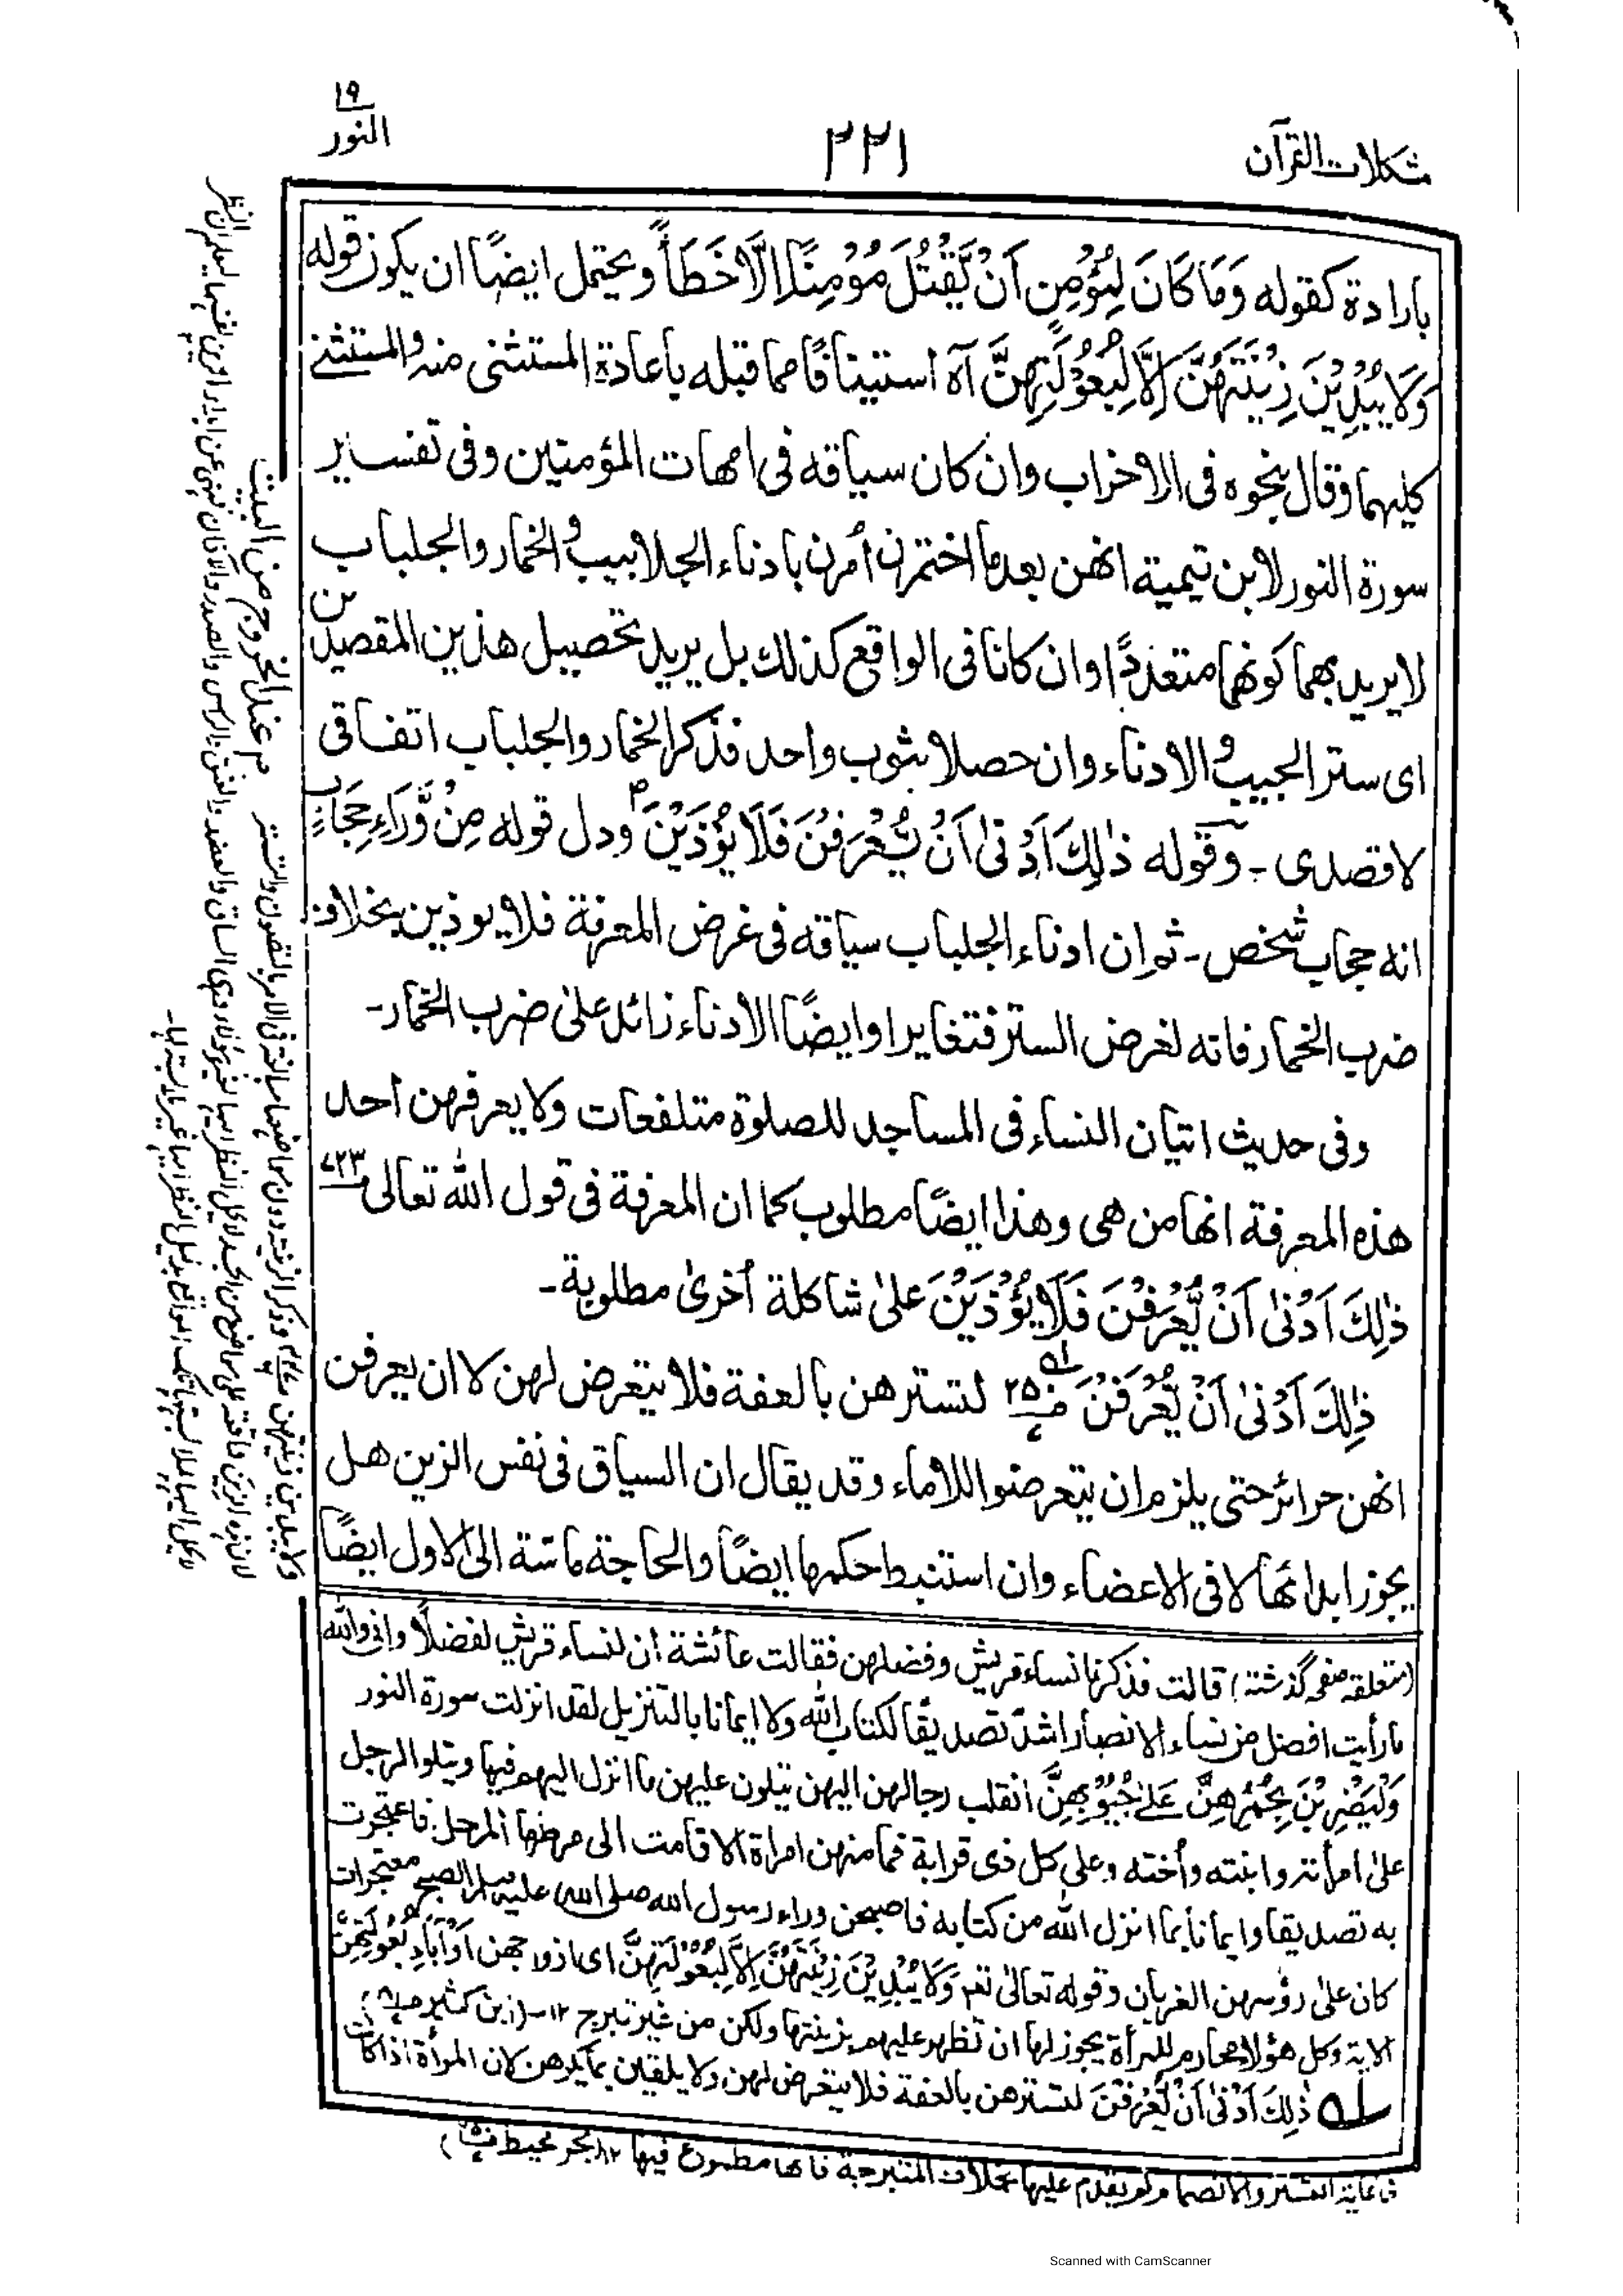 مشكلات القرآن
٢٢١
١٩
النور
بارادة كقوله وَمَا كَانَ لِمُؤْمِنٍ اَنْ يَّقْتُلَ مُؤْمِنًا اِلَّا خَطَأً ويحتمل ايضًا ان يكون قوله
وَلَا يُبْدِيْنَ زِيْنَتَهُنَّ اِلَّا لِبُعُوْلَتِهِنَّ آه استينافًا مما قبله باعادة المستثنى منه والمستثنے
كليهما وقال بنحوه فى الاحزاب وان كان سياقه فى امهات المؤمنين وفى تفسير
سورة النور لابن تيمية انهن بعد ما اختمرن اُمرن بادناء الجلابيب والخمار والجلباب
لا يريد بهما كونهما متعددًا وان كانا فى الواقع كذلك بل يريد تحصيل هذين المقصدين
اى ستر الجيب والادناء وان حصلا بثوب واحد فذكر الخمار والجلباب اتفاقى
لا قصدى ـ وقوله ذٰلِكَ اَدْنٰى اَنْ يُّعْرَفْنَ فَلَا يُؤْذَيْنَ ودل قوله مِنْ وَّرَاءِ حِجَابٍ
انه حجاب شخص ـ ثم ان ادناء الجلباب سياقه فى غرض المعرفة فلا يوذين بخلاف
ضرب الخمار فانه لغرض الستر فتغايرا وايضًا الادناء زائد علىٰ ضرب الخمار ـ
وفى حديث اتيان النساء فى المساجد للصلوة متلفعات ولا يعرفهن احد
هذه المعرفة انها من هى وهذا ايضًا مطلوب كما ان المعرفة فى قول الله تعالى
ذٰلِكَ اَدْنٰى اَنْ يُّعْرَفْنَ فَلَا يُؤْذَيْنَ علىٰ شاكلة اُخرىٰ مطلوبة ـ
ذٰلِكَ اَدْنٰى اَنْ يُّعْرَفْنَ لتسترهن بالعفة فلا يتعرض لهن لا ان يعرفن
انهن حرائر حتى يلزم ان يتعرضوا للاماء وقد يقال ان السياق فى نفس الزين هل
يجوز ابدائها لا فى الاعضاء وان استنبط حكمها ايضًا والحاجة ماسة الى الاول ايضًا
(متعلقہ صفحہ گذشتہ) قالت فذكرنا نساء قريش وفضلهن فقالت عائشة ان لنساء قريش لفضلًا وانى والله
ما رأيت افضل من نساء الانصار اشدّ تصديقًا لكتاب الله ولا ايمانا بالتنزيل لقد انزلت سورة النور
وَلْيَضْرِبْنَ بِخُمُرِهِنَّ عَلٰى جُيُوْبِهِنَّ انقلب رجالهن اليهن يتلون عليهن ما انزل اليهم فيها ويتلوا الرجل
علىٰ امرأته وابنته وأخته وعلى كل ذى قرابة فما منهن امراة الا قامت الى مرطها المرحل فاعتجرت
به تصديقا وايمانا بما انزل الله من كتابه فاصبحن وراء رسول الله صلى الله عليه وسلم الصبح معتجرات
كان علىٰ رؤسهن الغربان وقوله تعالىٰ وَلَا يُبْدِيْنَ زِيْنَتَهُنَّ اِلَّا لِبُعُوْلَتِهِنَّ اى ازواجهن اَوْ اٰبَاءِ بُعُوْلَتِهِنَّ
الاية وكل هؤلاء محارم للمرأة يجوز لها ان تظهر عليهم بزينتها ولكن من غير تبرج ١٢ ـ (ابن كثير
ذٰلِكَ اَدْنٰى اَنْ يُّعْرَفْنَ لتسترهن بالعفة فلا يتعرض لهن ولا يلقين بما يكرهن لان المرأة اذا كانت
فى غاية التستر والانضمام لم يقدم عليها بخلاف المتبرجة فانها مطموع فيها ١٢ (بحر محيط
عند الخروج من البيت
Scanned with CamScanner